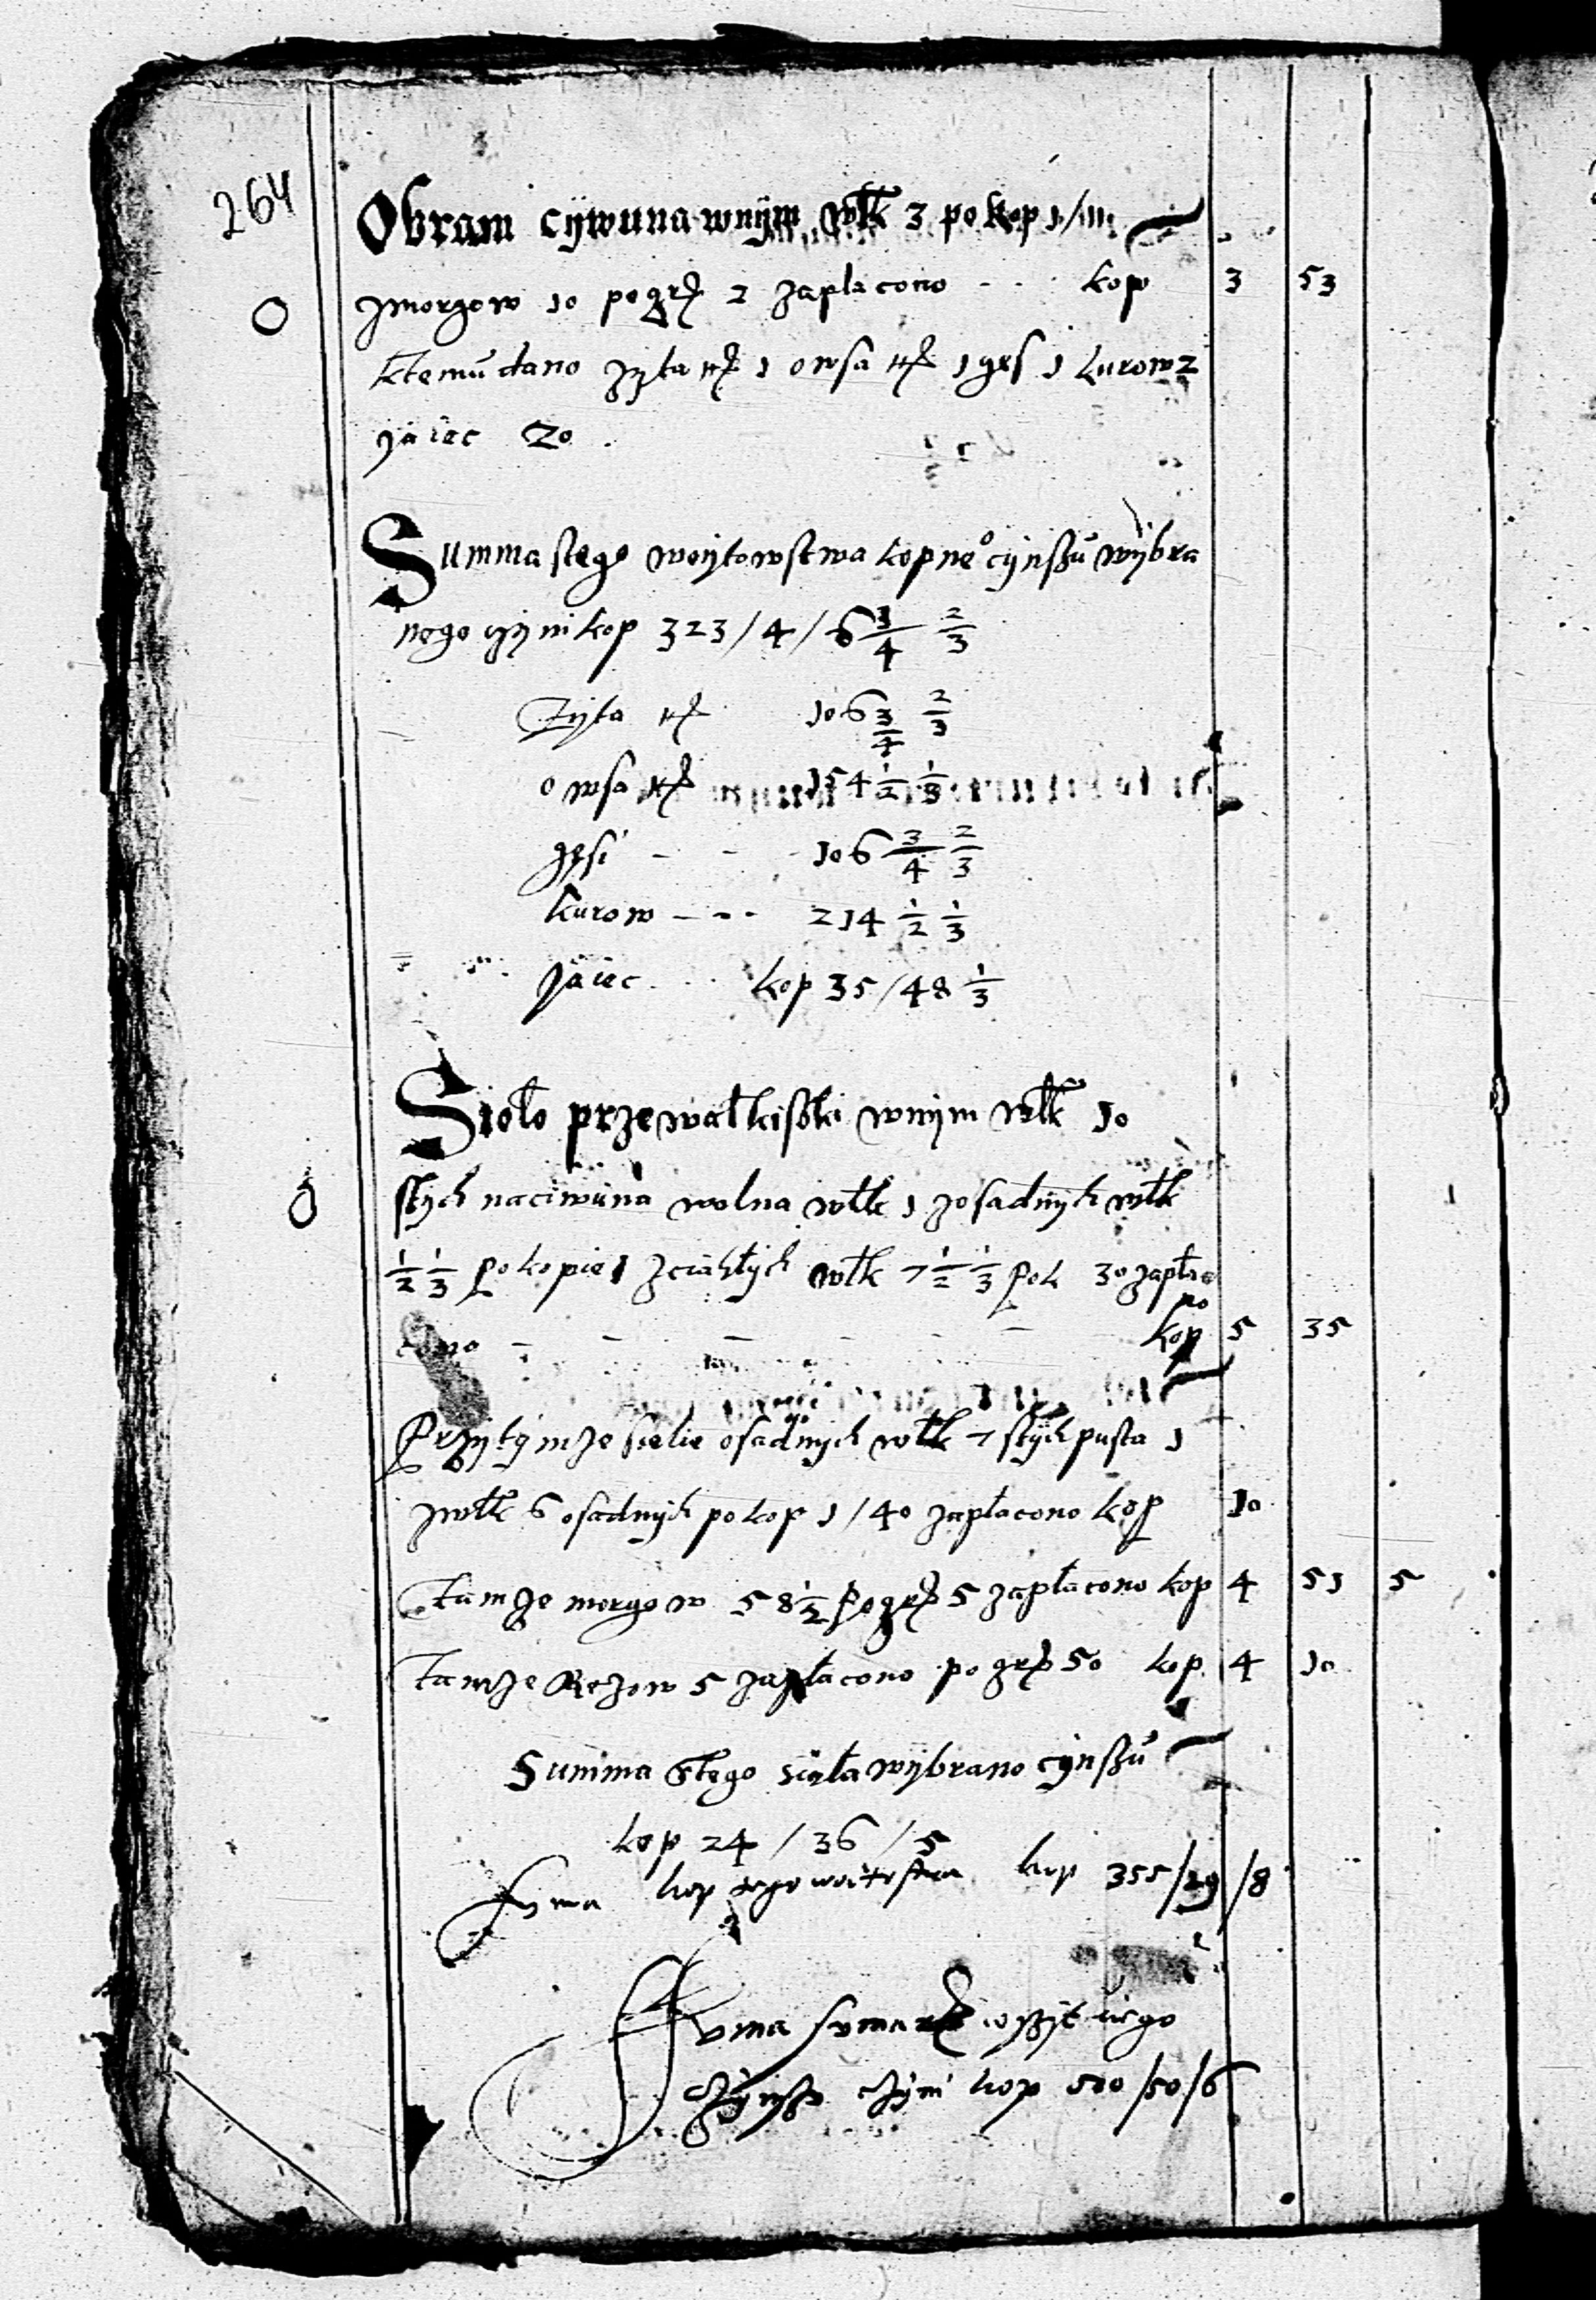 264
Obram cywuna wnÿm włk 3 po kop 1/11
zmorgow 10 pogrß 2 zapłacono - - - kop 3 53
Ktemu dano zyta 1 owsa 1 gęs 1 kurow 2
jaiec 20
Summa stego woytowstwa kopne° cÿnßu wÿbra
nego czyni kop 323/4/6 3/4 2/3
Zyta 106 3/4 2/3
owsa 154 1/2 1/3
gęsi - - - 106 3/4 2/3
kurow - - - 214 1/2 1/3
Jaiec - - kop 35/48 1/3
Sioło przewałkißki wnÿm włk 10
stÿch naciwuna wolna włk 1 zosadnÿch włk
1/2 1/3 po kopie 1 zciahłÿch włk 7 1/2 1/3 po k 30 zapłac
ono - - - - - - kop 5 35
Przÿtÿmże sielie osadnÿch włk 7 stÿch pusta 1
zwłk 6 osadnÿch po kop 1/40 zapłacono kop 10
tamże morgow 58 1/2 pogrß 5 zapłacono kop 4 51 5
tamże Rezow 5 zapłacono po grß 50 kop 4 10
Summa stego sioła wÿbrano cÿnßu
kop 24/36/5
Suma kop tego woitostwa kop 355/29/8
Suma sumar wszÿtkiego
czÿnßu czÿni kop 500/50/6